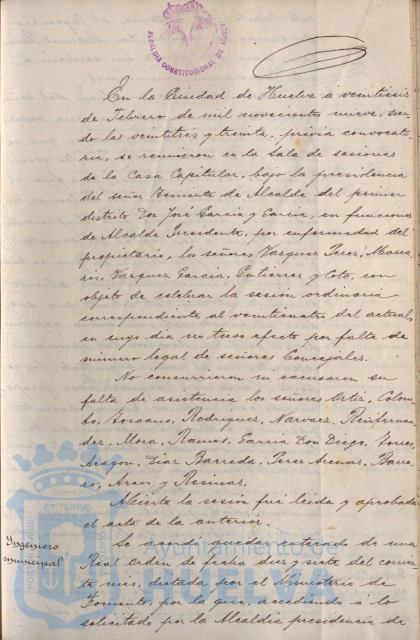 ALCALDIA CONSTITUCIONAL DE HUELVA
En la Ciudad de Huelva á veintiseis
de Febrero de mil novecientos nueve, sien-
do las veintitres y treinta, prévia convocato-
ria, se reunieron en la Sala de sesiones
de la Casa Capitular, bajo la presidencia
del señor Teniente de Alcalde del primer
distrito Don José García y García, en funciones
de Alcalde Presidente, por enfermedad del
propietario, los señores Vazquez Perez,
Vazquez García, Gutierrez y Coto, con
objeto de celebrar la sesión ordinaria
correspondiente al veinticuatro del actual,
en cuyo dia no tuvo efecto por falta de
número legal de señores Concejales.
No concurrieron ni excusaron su
falta de asistencia los señores Ortiz, Colom-
bo, Toscano, Rodriguez, Narvaez,
Mora, Ramos, García Don Diego, Torres,
Aragon, Diaz Barreda, Perez Arenas, Barro-
so, y
Abierta la sesión fué leida y aprobada
el acta de la anterior.
Yngeniero
municipal
Se acordó quedar enterado de una
Real Orden de fecha diez y siete del corrien-
te mes, dictada por el Ministerio de
Fomento, por la que, accediendo a lo
solicitado por la Alcaldia presidencia de
ET TERRAE
Ayuntamiento de
HUELVA